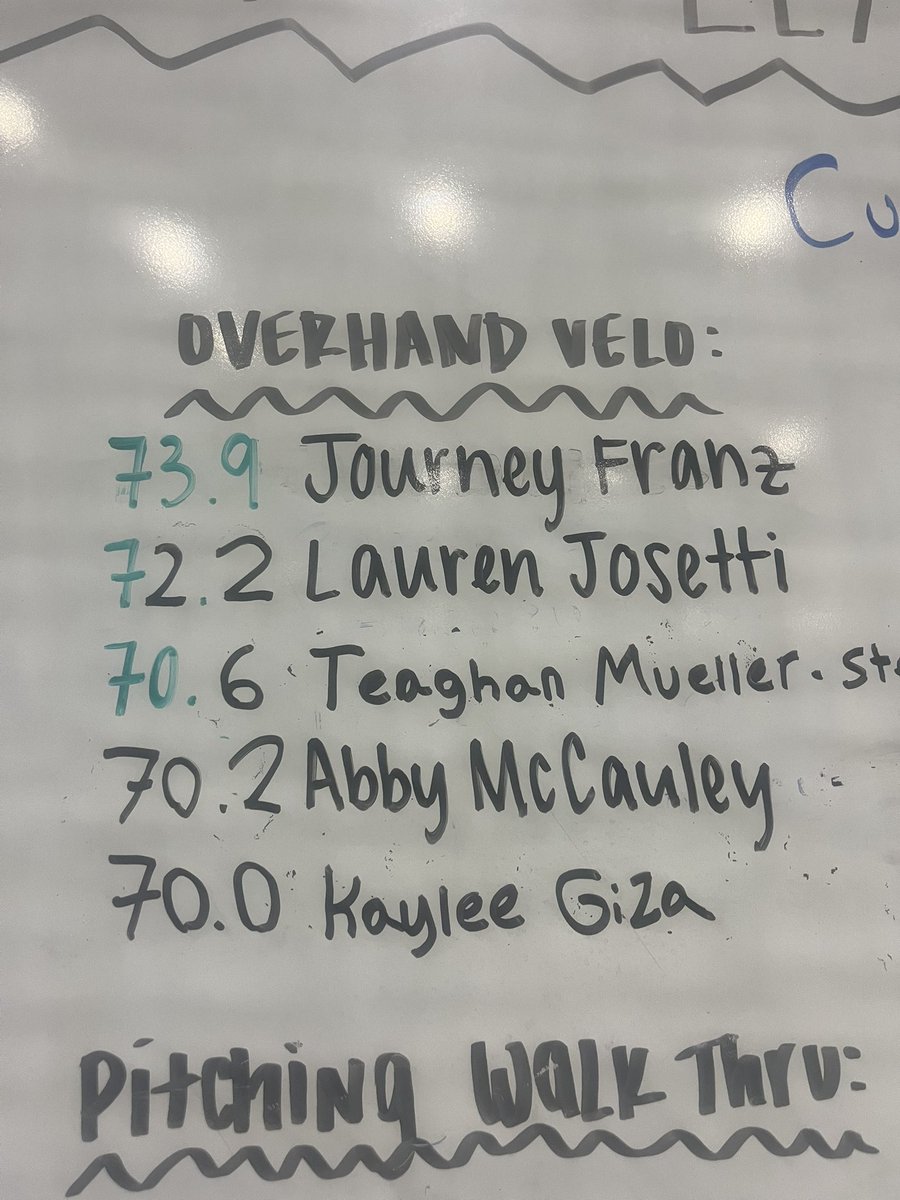 Cu
OVERHAND VELO:
73.9 Journey Franz
72.2 Lauren Josetti
70.6 Teaghan Mueller - St
70.2 Abby McCauley
70.0 Kaylee Giza
Pitching Walk Thru: